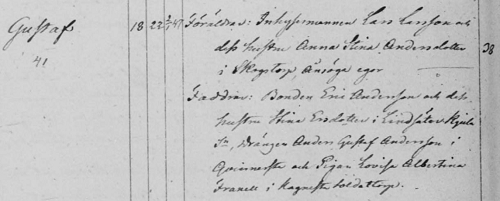 Gustaf 18 22 2/4 47 Föräldrar: Inhysemannen Lars Larsson och
41 dess hustru Anna Stina Andersdotter 38
i Skogstorp, Ånsöga egor
Faddrar: Bonden Eric Andersson och dess
hustru Stina Ersdotter i Lindsäter Kjula
Sn, Drängen Anders Gustaf Andersson i
och Pigan Lovisa Albertina
i soldattorp.